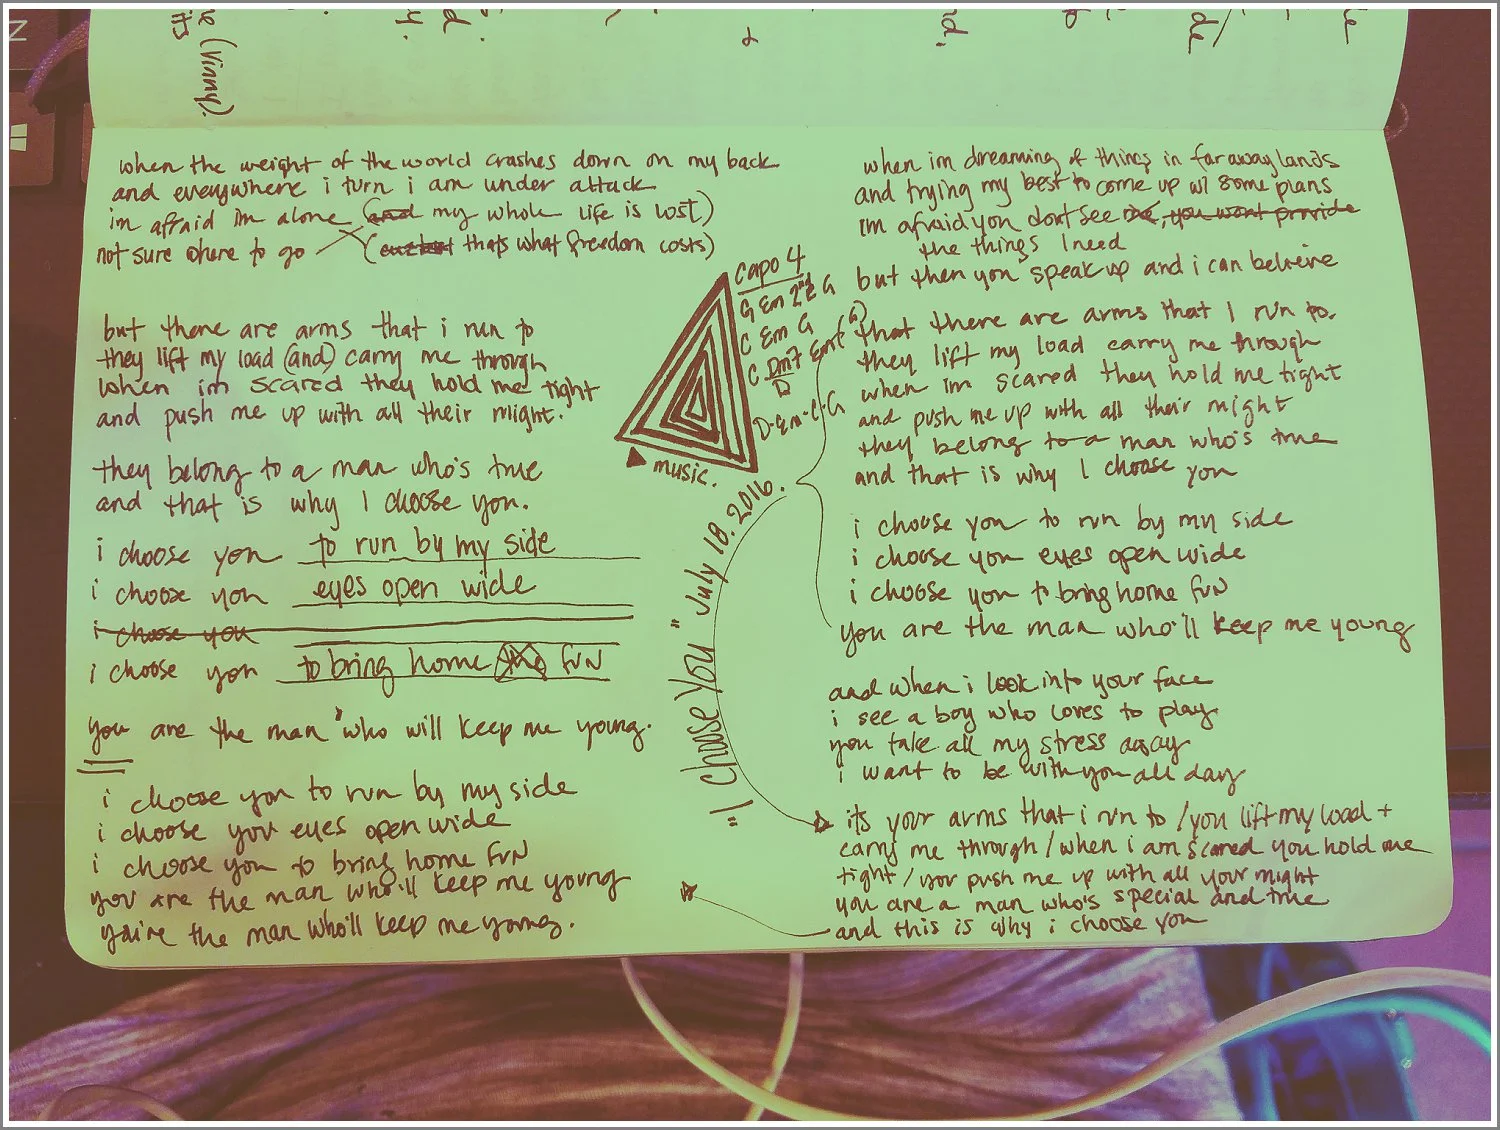 (Vinny).
its
when the weight of the world crashes down on my back
and everywhere i turn i am under attack
im afraid im alone (and my whole life is lost)
not sure where to go ( thats what freedom costs)
but there are arms that i run to
they lift my load (and) carry me through
when im scared they hold me tight
and push me up with all their might.
they belong to a man who's true
and that is why I choose you.
i choose you to run by my side
i choose you eyes open wide
i choose you
i choose you to bring home me fun
you are the man who will keep me young.
i choose you to run by my side
i choose you eyes open wide
i choose you to bring home fun
you are the man who'll keep me young
you're the man who'll keep me young.
capo 4
G Em 2nd G
C Em G
C Dm7 Em (G)
D
D-Em-C-G
music.
"I Choose You" July 18. 2016.
when im dreaming of things in far away lands
and trying my best to come up w/ some plans
Im afraid you dont see me, you wont provide
the things I need
but then you speak up and i can believe
that there are arms that I run to.
they lift my load carry me through
when im scared they hold me tight
and push me up with all their might
they belong to a man who's true
and that is why I choose you
i choose you to run by my side
i choose you eyes open wide
i choose you to bring home fun
you are the man who'll keep me young
and when i look into your face
i see a boy who loves to play
you take all my stress away
i want to be with you all day
its your arms that i run to / you lift my load +
carry me through / when i am scared you hold me
tight / you push me up with all your might
you are a man who's special and true
and this is why i choose you